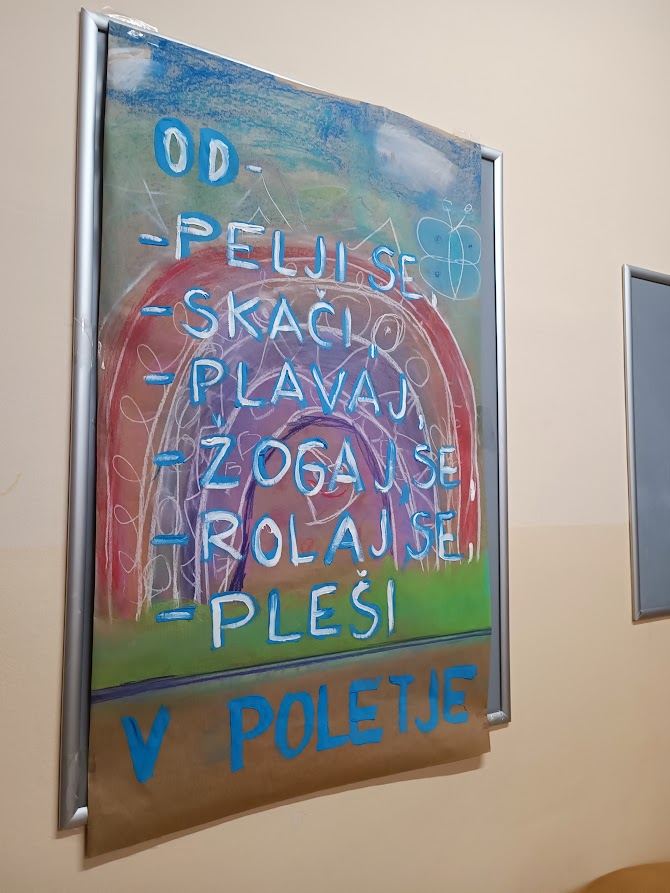 OD-
-PELJI SE,
-SKAČI,
-PLAVAJ,
-ŽOGAJ SE
-ROLAJ SE,
-PLEŠI
V POLETJE